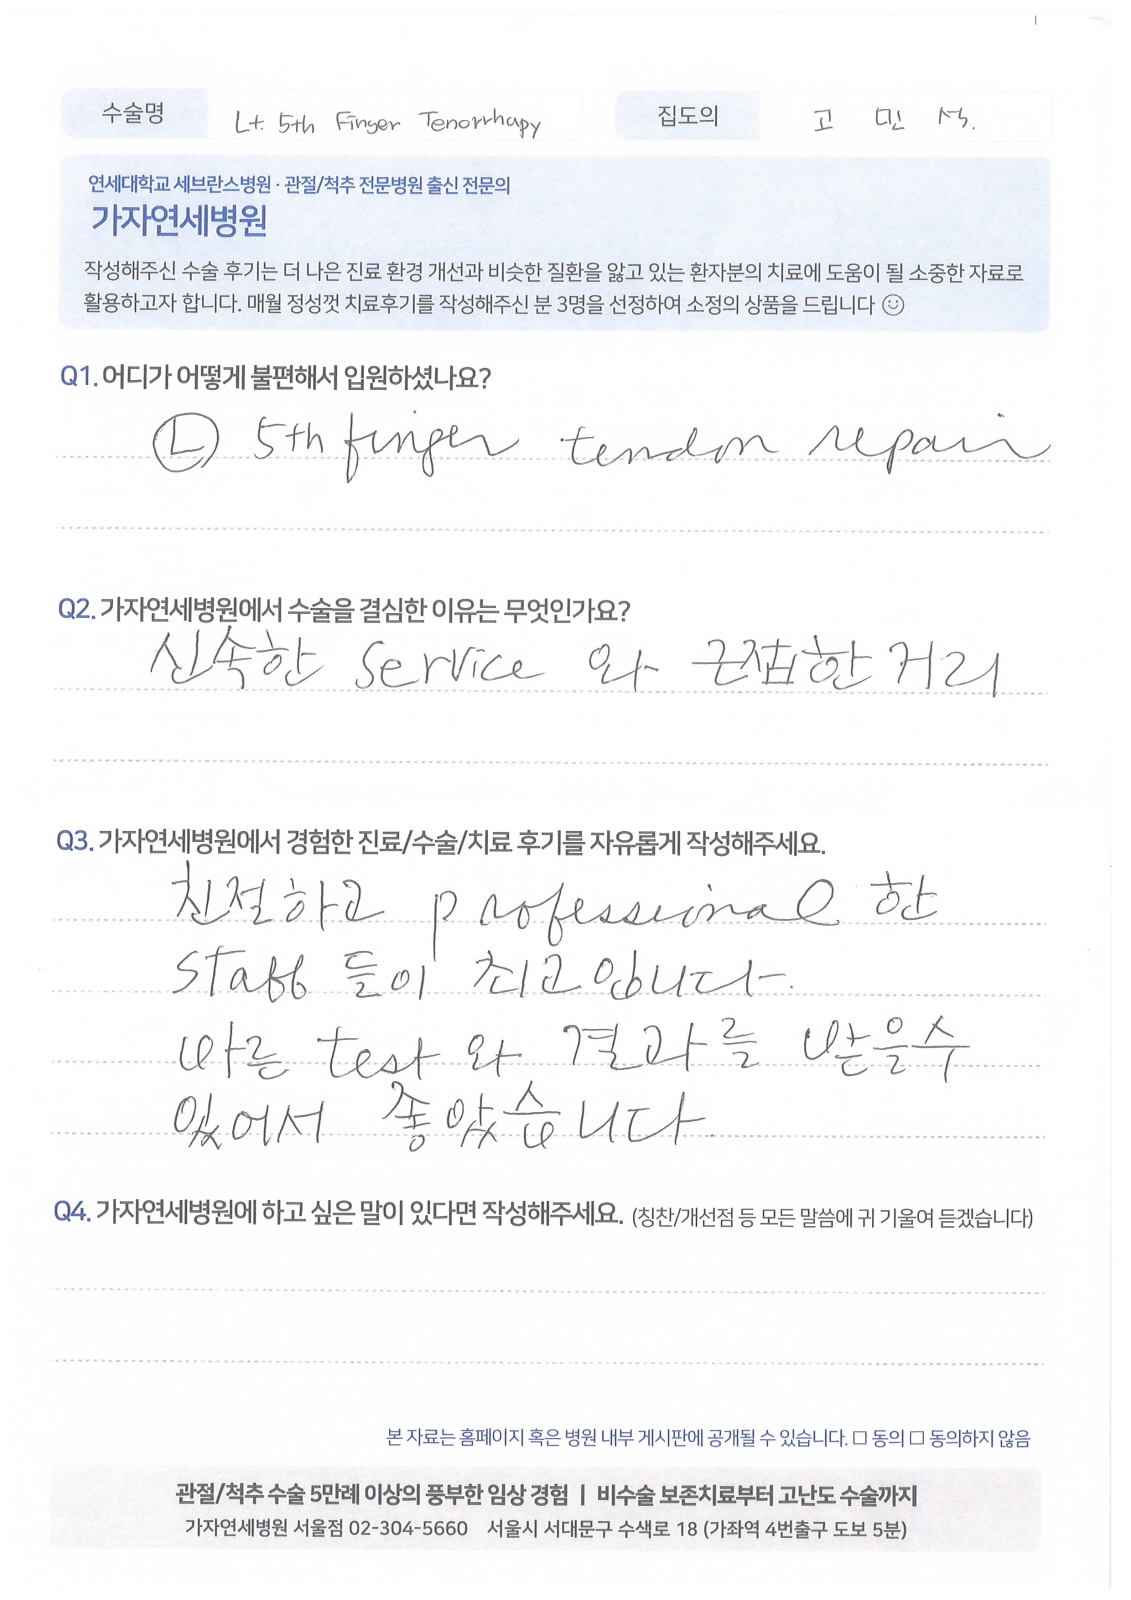 수술명 Lt. 5th Finger Tenorrhapy 집도의 고 민 석.
연세대학교 세브란스병원 · 관절/척추 전문병원 출신 전문의
가자연세병원
작성해주신 수술 후기는 더 나은 진료 환경 개선과 비슷한 질환을 앓고 있는 환자분의 치료에 도움이 될 소중한 자료로
활용하고자 합니다. 매월 정성껏 치료후기를 작성해주신 분 3명을 선정하여 소정의 상품을 드립니다 ☺
Q1. 어디가 어떻게 불편해서 입원하셨나요?
Ⓛ 5th finger tendon repair
Q2. 가자연세병원에서 수술을 결심한 이유는 무엇인가요?
신속한 service 와 근접한 거리
Q3. 가자연세병원에서 경험한 진료/수술/치료 후기를 자유롭게 작성해주세요.
친절하고 professional 한
staff 들이 최고입니다.
바른 test 와 결과를 받을수
있어서 좋았습니다.
Q4. 가자연세병원에 하고 싶은 말이 있다면 작성해주세요. (칭찬/개선점 등 모든 말씀에 귀 기울여 듣겠습니다)
본 자료는 홈페이지 혹은 병원 내부 게시판에 공개될 수 있습니다. □ 동의 □ 동의하지 않음
관절/척추 수술 5만례 이상의 풍부한 임상 경험 | 비수술 보존치료부터 고난도 수술까지
가자연세병원 서울점 02-304-5660 서울시 서대문구 수색로 18 (가좌역 4번출구 도보 5분)